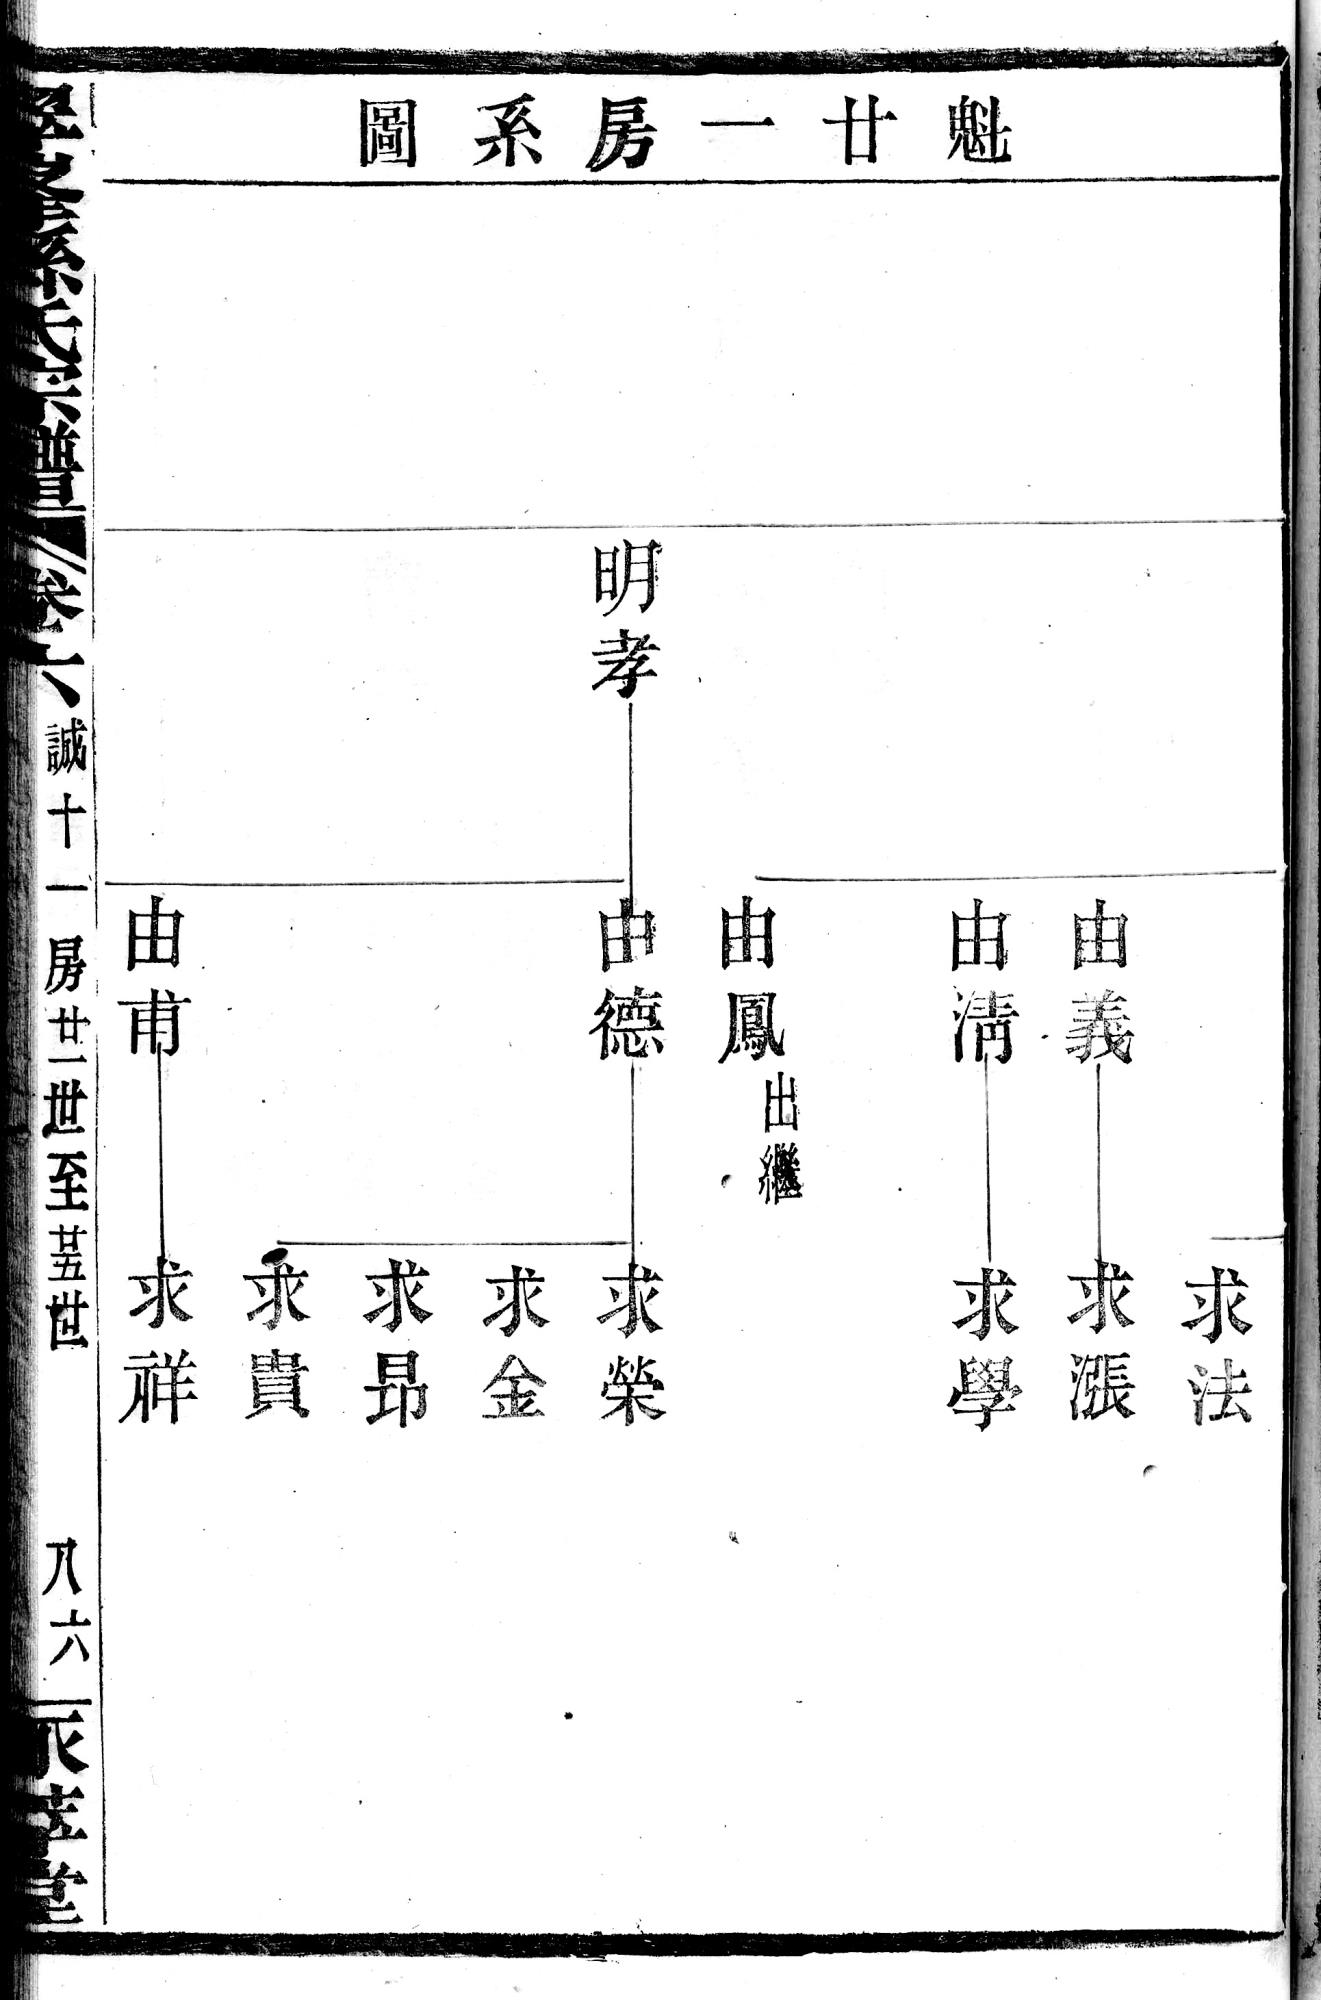 魁廿一房系圖
明孝
由義
由清
由鳳 出繼
由德
由甫
求法
求漲
求學
求榮
求金
求昂
求貴
求祥
孫氏宗譜
卷六
誠十一房廿一世至廿五世
八六
堂